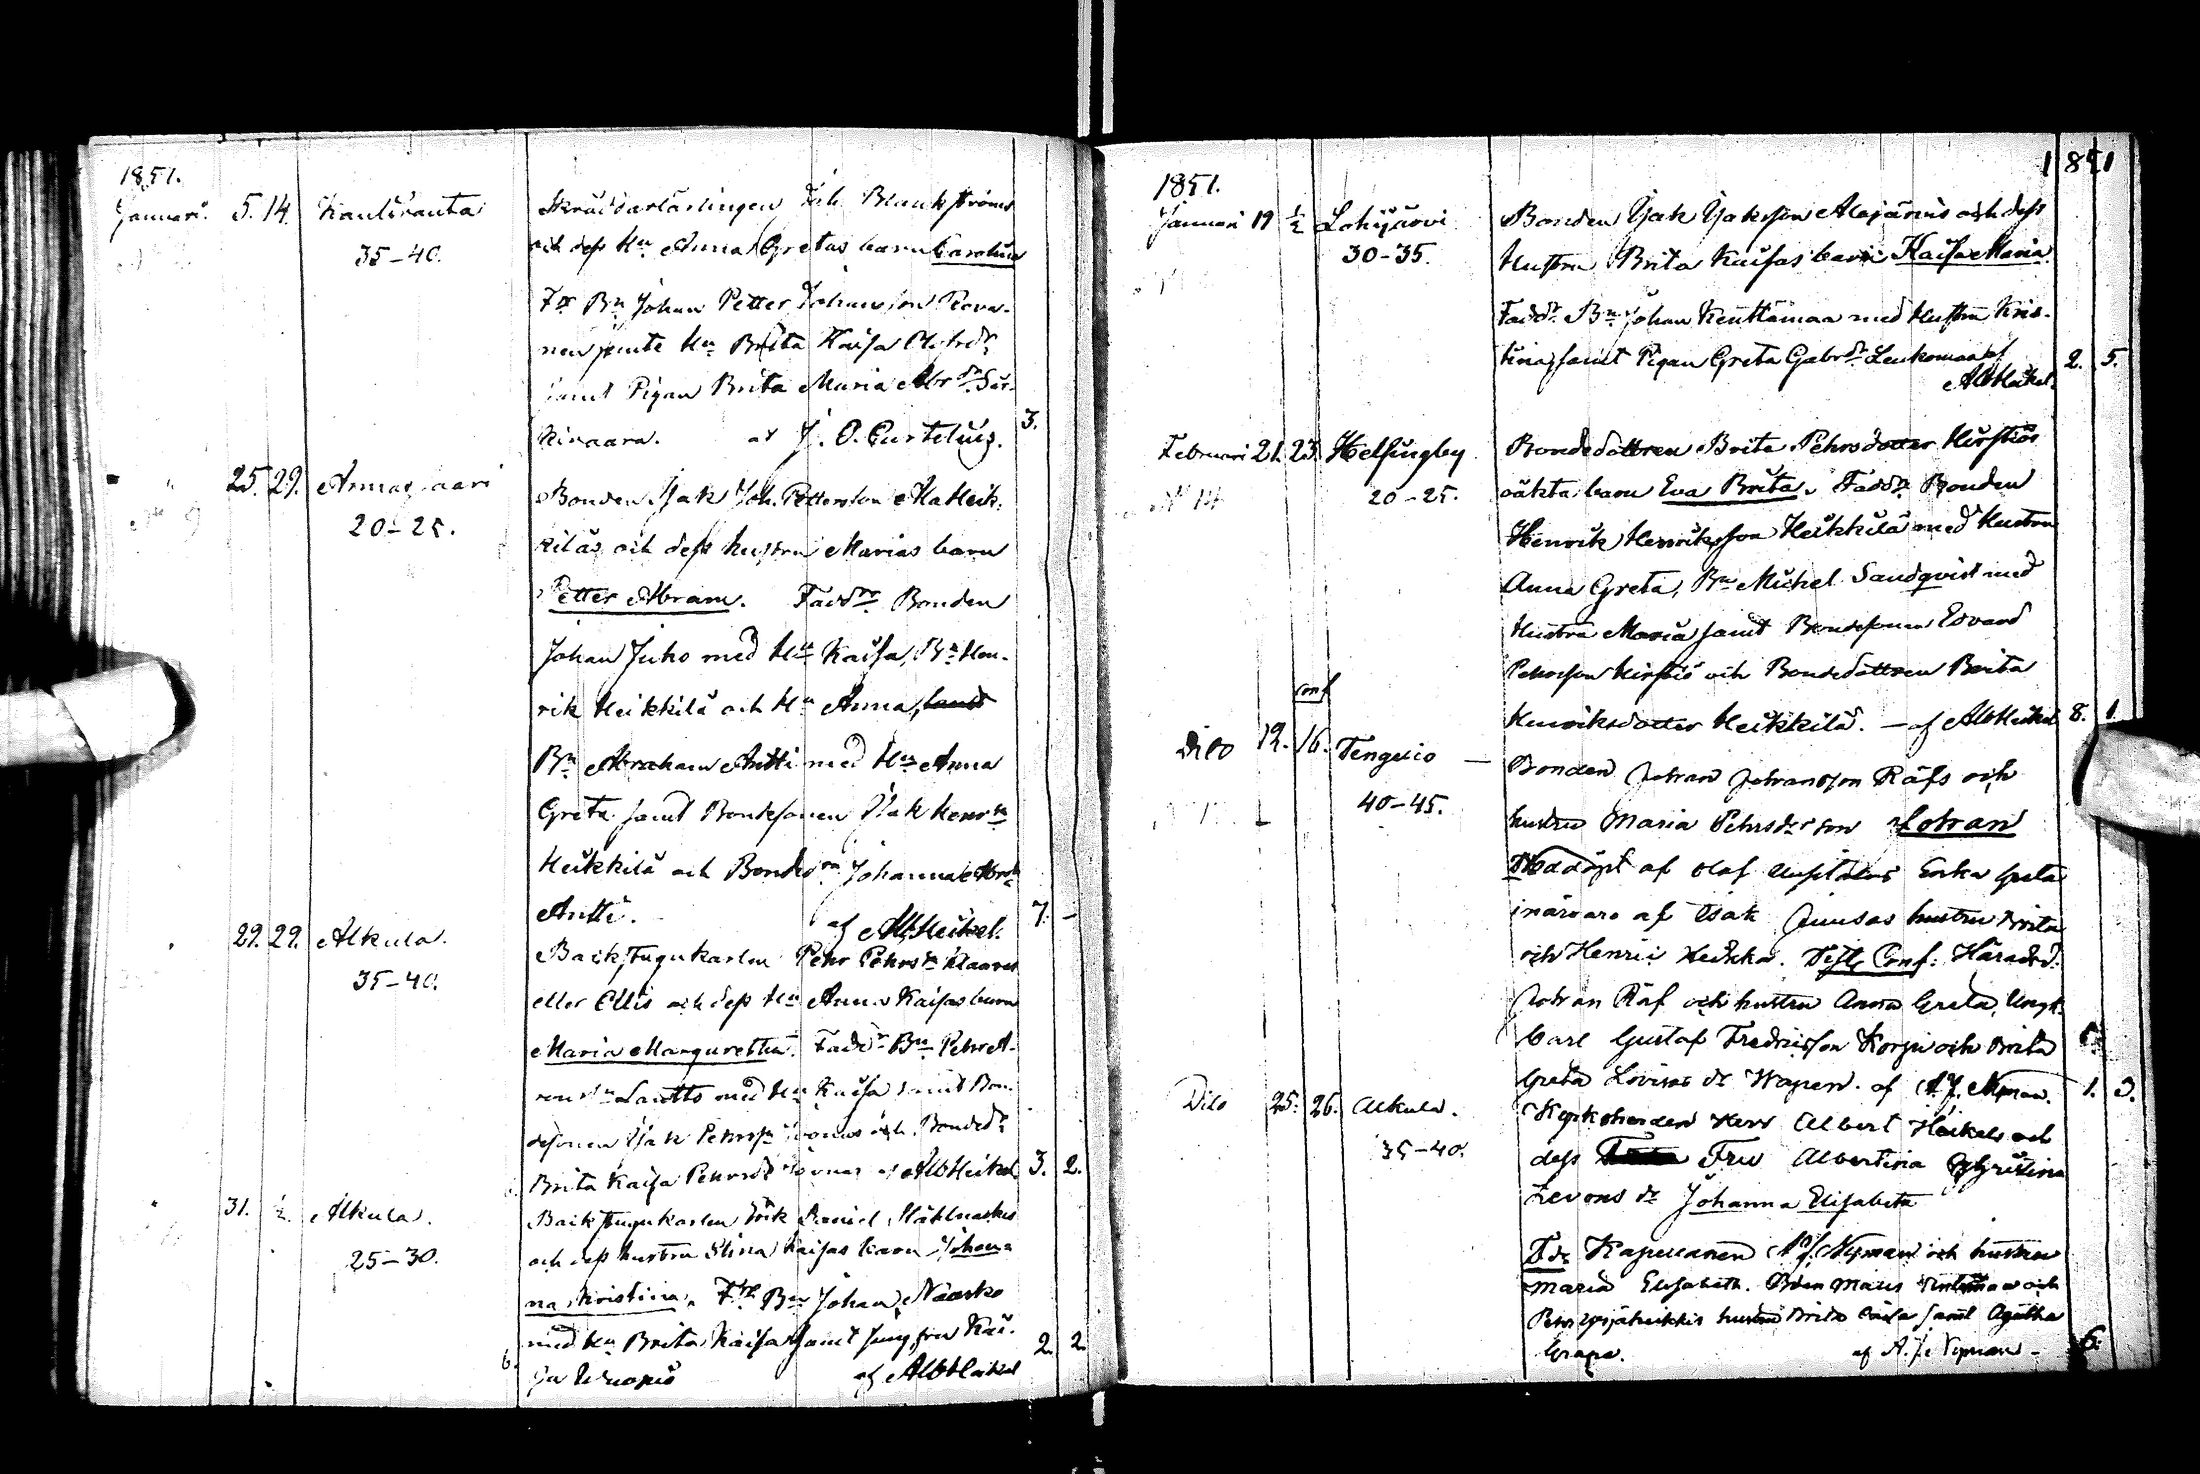 1851.
Januari. 5. 14. Kauliranta Skräddarlärlingen Joh. Blankströms
35-40. och dess Hu Anna Gretas barn Carolina
Fr Bn Johan Petter Johansson Rova-
nen jemte Hu Brita Kaisa Olofsdr
samt Pigan Brita Maria Abrdr Sär-
kivaara. af J. O. Curtelius. 3.
25. 29. Armassaari Bonden Isak Joh. Pettersson AlaHeik-
20-25. kiläs och dess hustru Marias barn
Petter Abram. Faddr Bonden
Johan Juho med Hu Kaisa, Bn Hen-
rik Heikkilä och Hu Anna, samt
Bn Abraham Antti med Hu Anna
Greta samt Bondesonen Isak Henrsn
Heikkilä och Bondedn Johanna Abrdr
Antti. af Alb Heikel. 7. -
29. 29. Alkula. Backstugukarlen Pehr Pehrsn Klaavus
35-40. eller Ellis och dess Hu Anna Kaisas barn
Maria Margaretha. Faddr Bn Pehr A-
ronsn Lautto med Hu Kaisa samt Bon-
desonen Isak Pehrsn och Bondedr
Brita Kaisa Pehrsdr af Alb Heikel 3. 2.
31. ½. Alkula. Backstugukarlen Erik Daniel
25-30. och dess hustru Stina Kaisas barn Johan-
na Kristina. Fdr Bn Johan Näasko
med Hu Brita Kaisa samt Jungfru Kai-
sa af Alb Heikel 2. 2.
1851
1851.
Januari 19 ½ Lohijärvi Bonden Isak Isaksson Alajärvis och dess
30-35. Hustru Brita Kaisas barn Kaisa Maria.
Faddr Bn Johan Kenttämaa med Hustru Kris-
tina, samt Pigan Greta Gabrdr Leukomaa af 2. 5.
Alb Heikel.
Februari 21. 23. Helsingby Bondedottren Brita Pehrsdotter Hirstiös
20-25. oäkta barn Eva Brita. Faddr Bonden
Henrik Henriksson Heikkilä med Hustru
Anna Greta, Bn Michel Sandqvist med
Hustru Maria samt Bondesonen Edvard
Pehrsson Hirstiö och Bondedottren Brita
Henriksdotter Heikkilä. - af Alb Heikel 8. 1.
conf
Dito 12. 16. Tengeliö - Bonden Johan Johansson Räfs och
40-45. hustru Maria Pehrsdr son Johan
Nöddöpt af Olof Enka Greta
i närvaro af Isak Junsas hustru Brita
och Henric Test Conf: Häradsd.
Johan Räf och hustru Anna Greta, Ungk.
Carl Gustaf Fredricsson Korpi och Brita
Greta Lovisa dr Wapen. af A. J. Nyman. 1. 3.
Dito 25. 26. Alkula. Kyrkoherden Herr Albert Heikels och
35-40. dess Fru Albertina Christina
Zevons dr Johanna Elisabeta
Fdr Kapellanen A. J. Nyman och hustru
Maria Elisabeth. Bden Matts och
Pehr hustru Brita Caisa samt Agatha
Grape. af A. J. Nyman - 6.